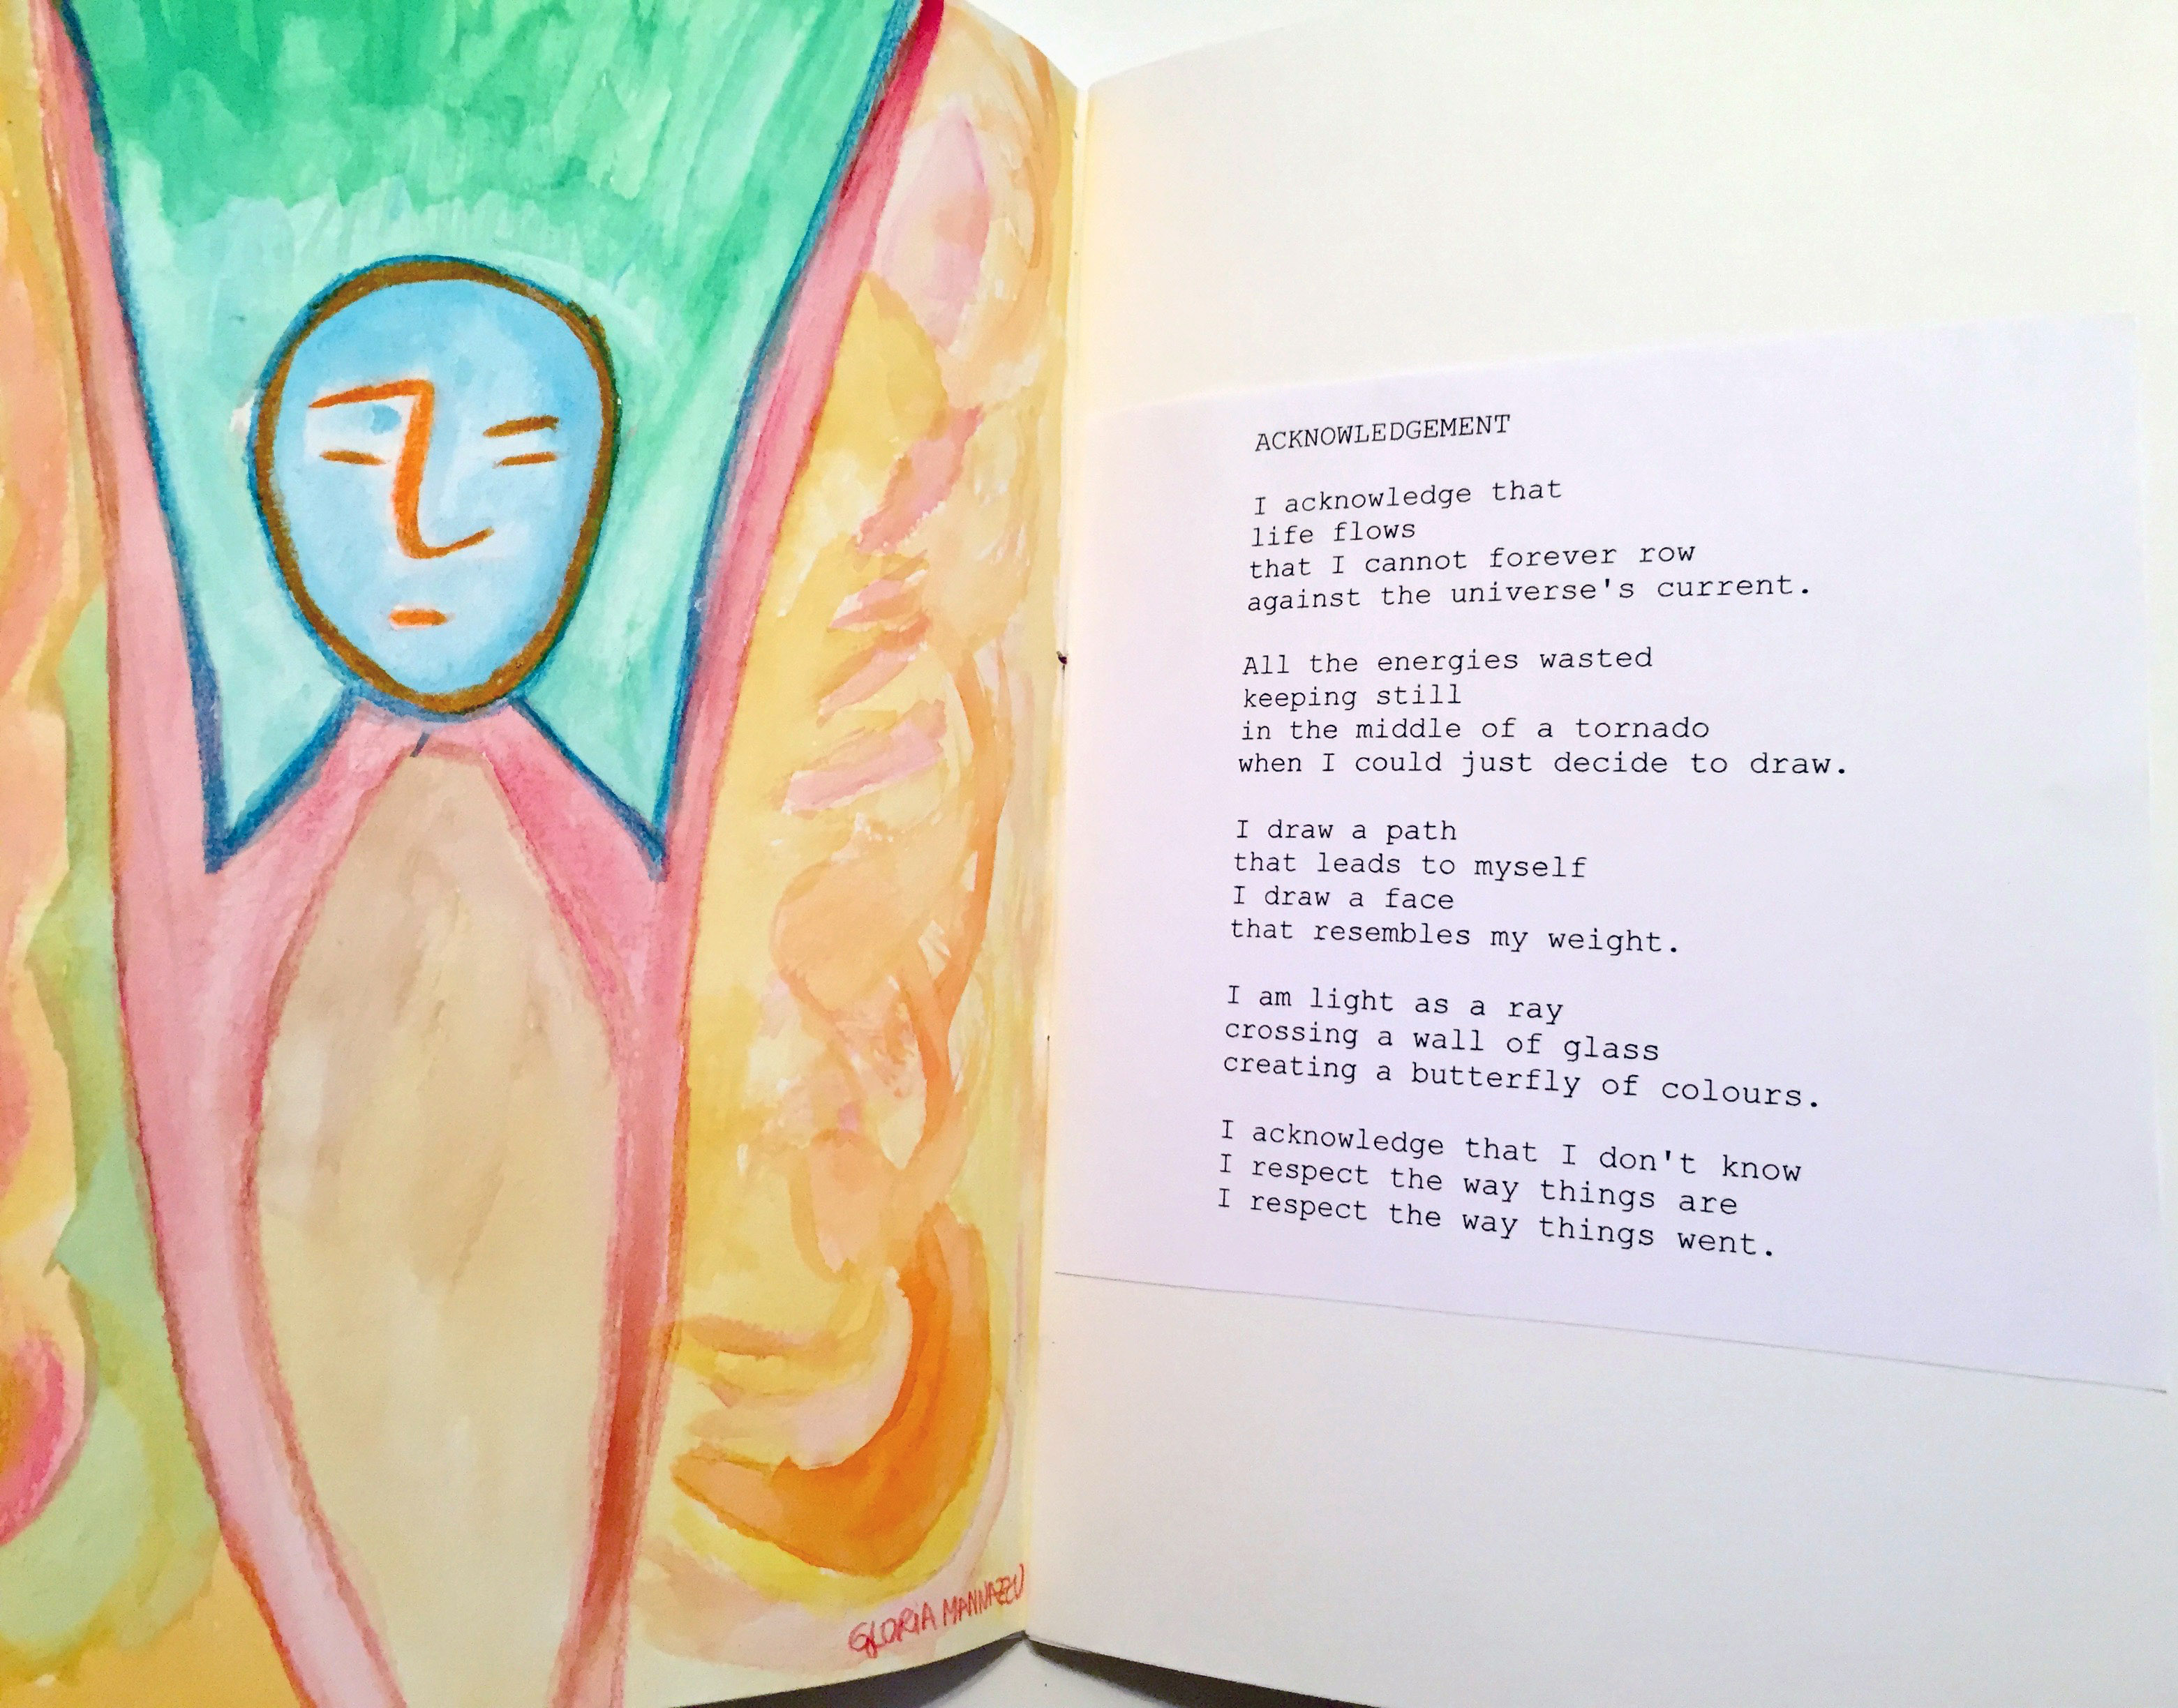 GLORIA MANNAZZU
ACKNOWLEDGEMENT
I acknowledge that
life flows
that I cannot forever row
against the universe's current.
All the energies wasted
keeping still
in the middle of a tornado
when I could just decide to draw.
I draw a path
that leads to myself
I draw a face
that resembles my weight.
I am light as a ray
crossing a wall of glass
creating a butterfly of colours.
I acknowledge that I don't know
I respect the way things are
I respect the way things went.